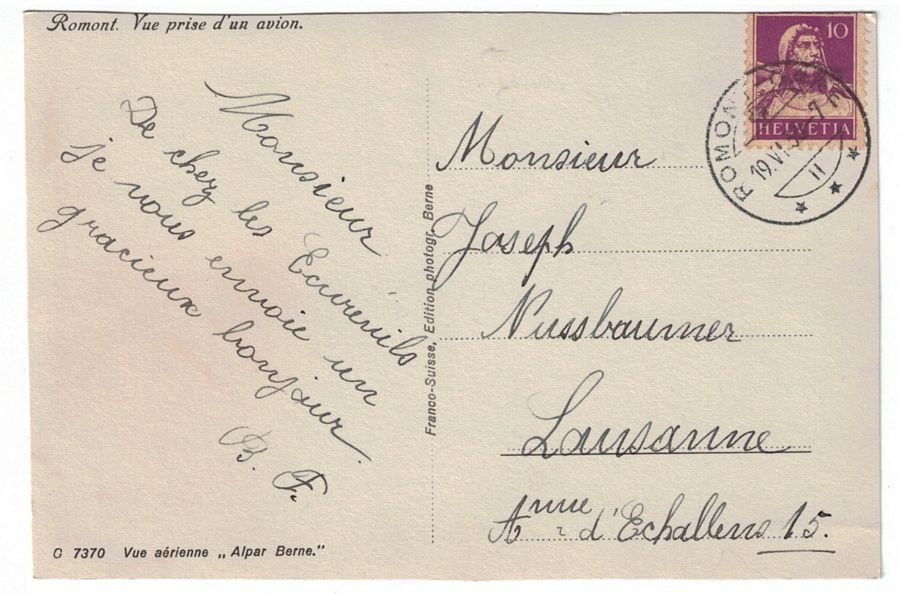 Romont. Vue prise d'un avion.
Monsieur
De chez les Ecureuils
je vous envoie un
gracieux bonjour.
B. F.
G 7370 Vue aérienne „Alpar Berne."
Franco-Suisse, Edition photogr. Berne
10
HELVETIA
ROMONT
19.VI.
II
Monsieur
Joseph
Nussbaumer
Lausanne
Anue d'Echallens 15.